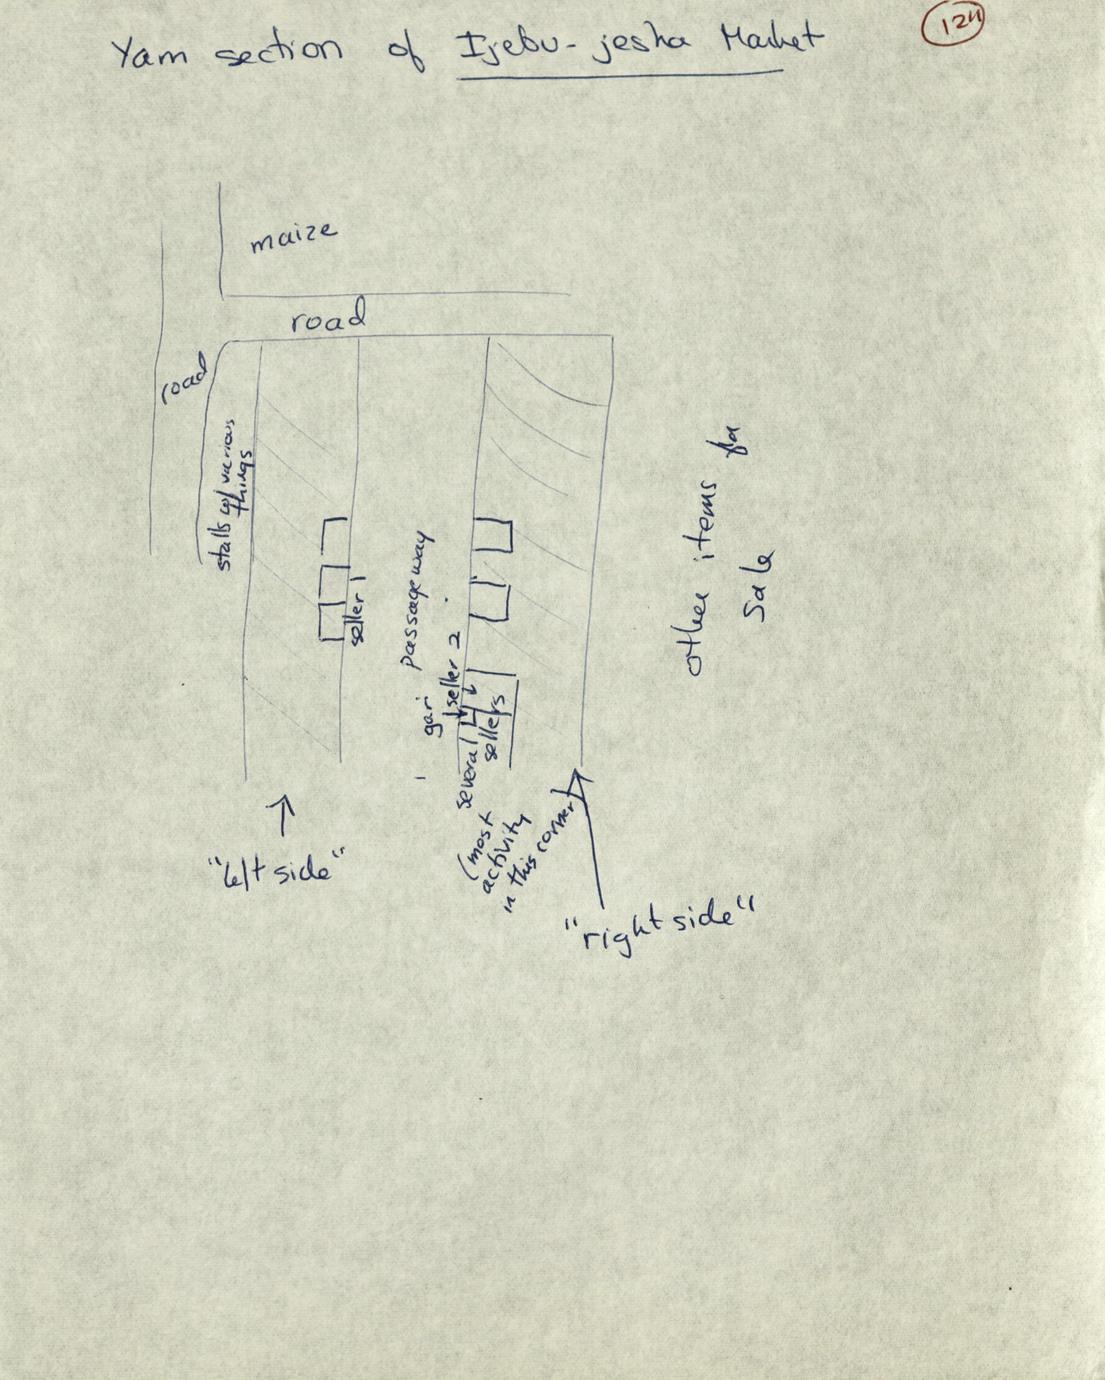 124
Yam section of Ijebu-jesha Market
maize
road
road
stalls w/ various
things
seller 1
passageway
gari
seller 2
several
sellers
(most
activity
in this corner)
other items for
sale
"left side"
"right side"